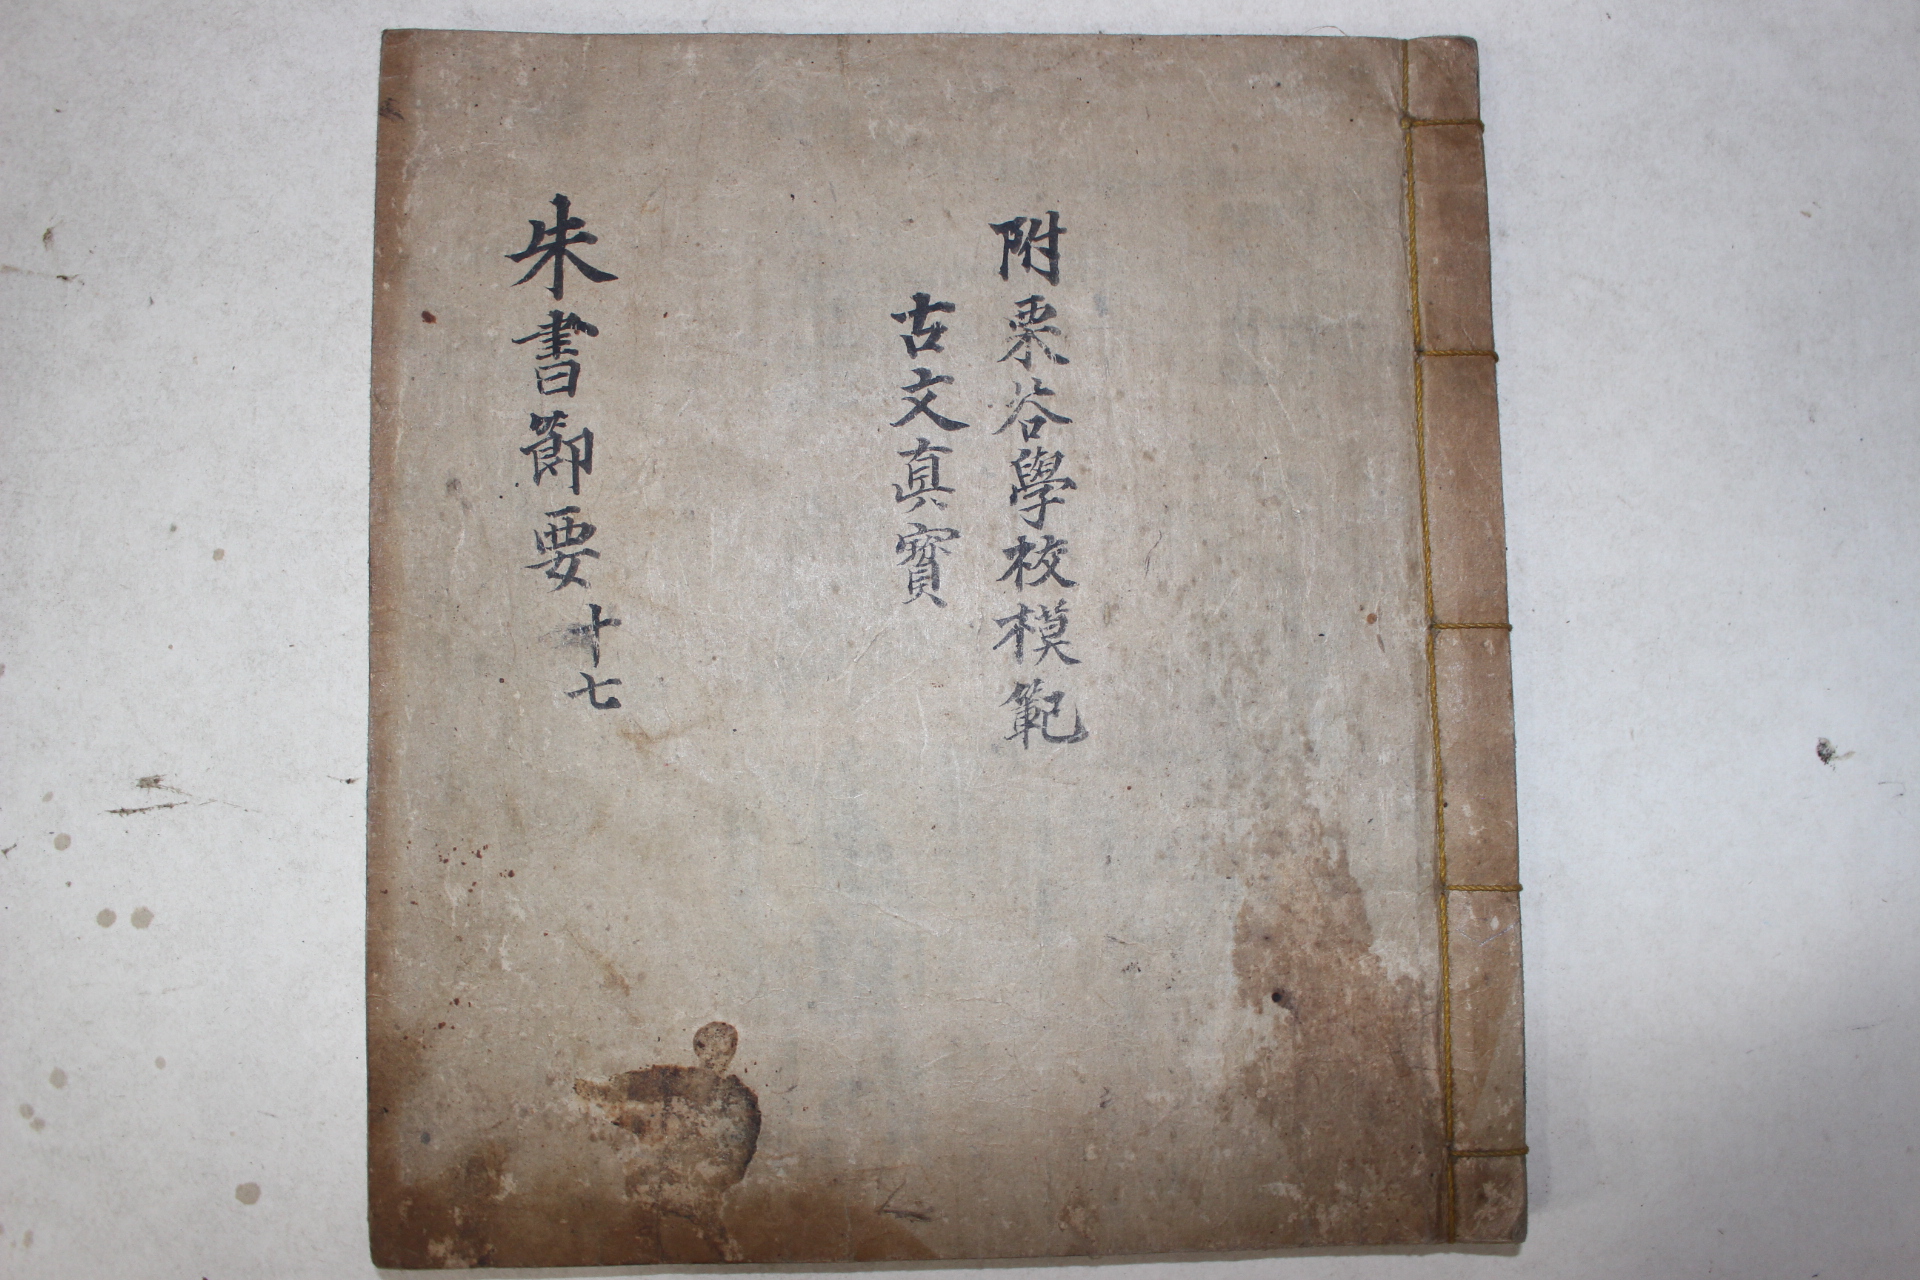 附栗谷學校模範
古文真寶
朱書節要 十七